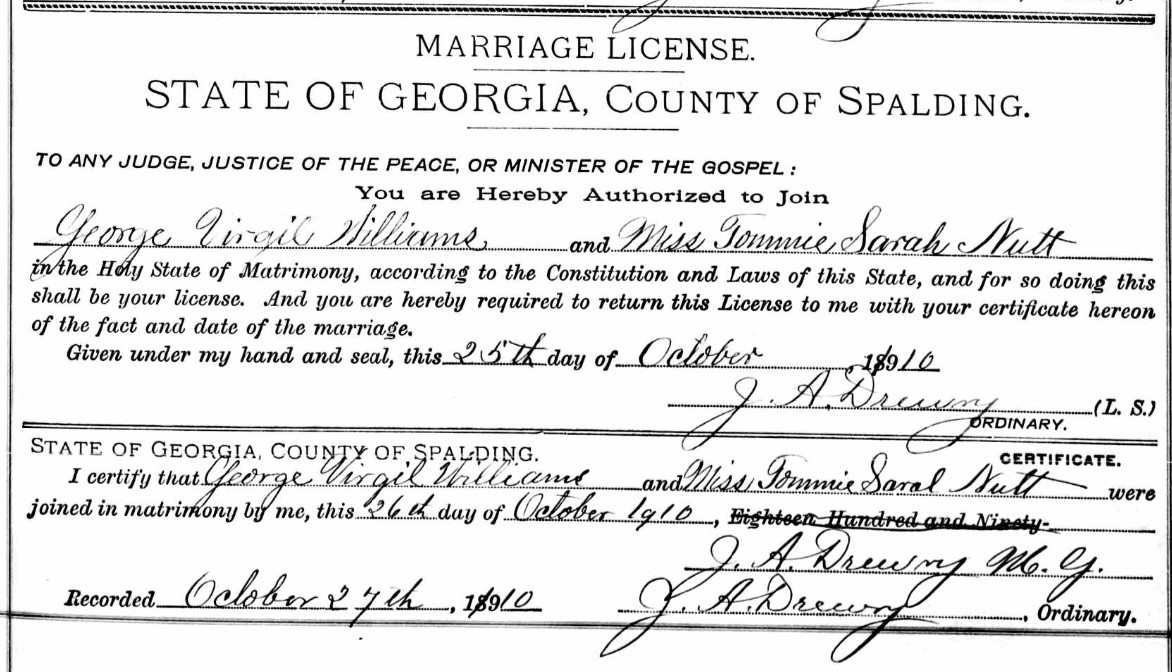 MARRIAGE LICENSE.
STATE OF GEORGIA, COUNTY OF SPALDING.
TO ANY JUDGE, JUSTICE OF THE PEACE, OR MINISTER OF THE GOSPEL :
You are Hereby Authorized to Join
George Virgil Williams and Miss Tommie Sarah Nutt
in the Holy State of Matrimony, according to the Constitution and Laws of this State, and for so doing this
shall be your license. And you are hereby required to return this License to me with your certificate hereon
of the fact and date of the marriage.
Given under my hand and seal, this 25th day of October, 18910
J. A. Drewry (L. S.)
ORDINARY.
STATE OF GEORGIA, COUNTY OF SPALDING.
CERTIFICATE.
I certify that George Virgil Williams and Miss Tommie Saral Nutt were
joined in matrimony by me, this 26th day of October 1910, Eighteen Hundred and Ninety-
J. A. Drewry M. G.
Recorded October 27th, 18910 J. A. Drewry, Ordinary.